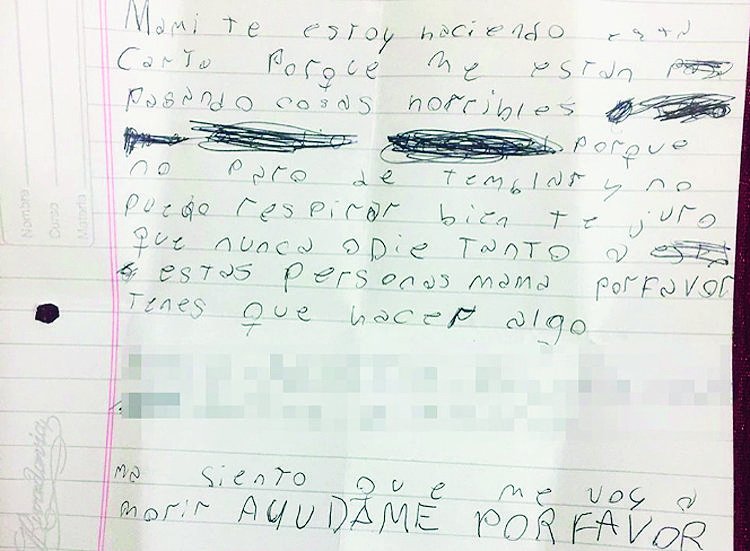 Mami te estoy haciendo esta
Carta Porque me estan
Pasando cosas horribles
porque
no paro de temblar y no
puedo respirar bien te juro
que nunca odie TANTO a
estas personas mama PORFAVOR
Tenes que hacer algo
ma siento que me voy a
morir AYUDAME POR FAVOR
Nombre
Curso
Materia
Rivadavia